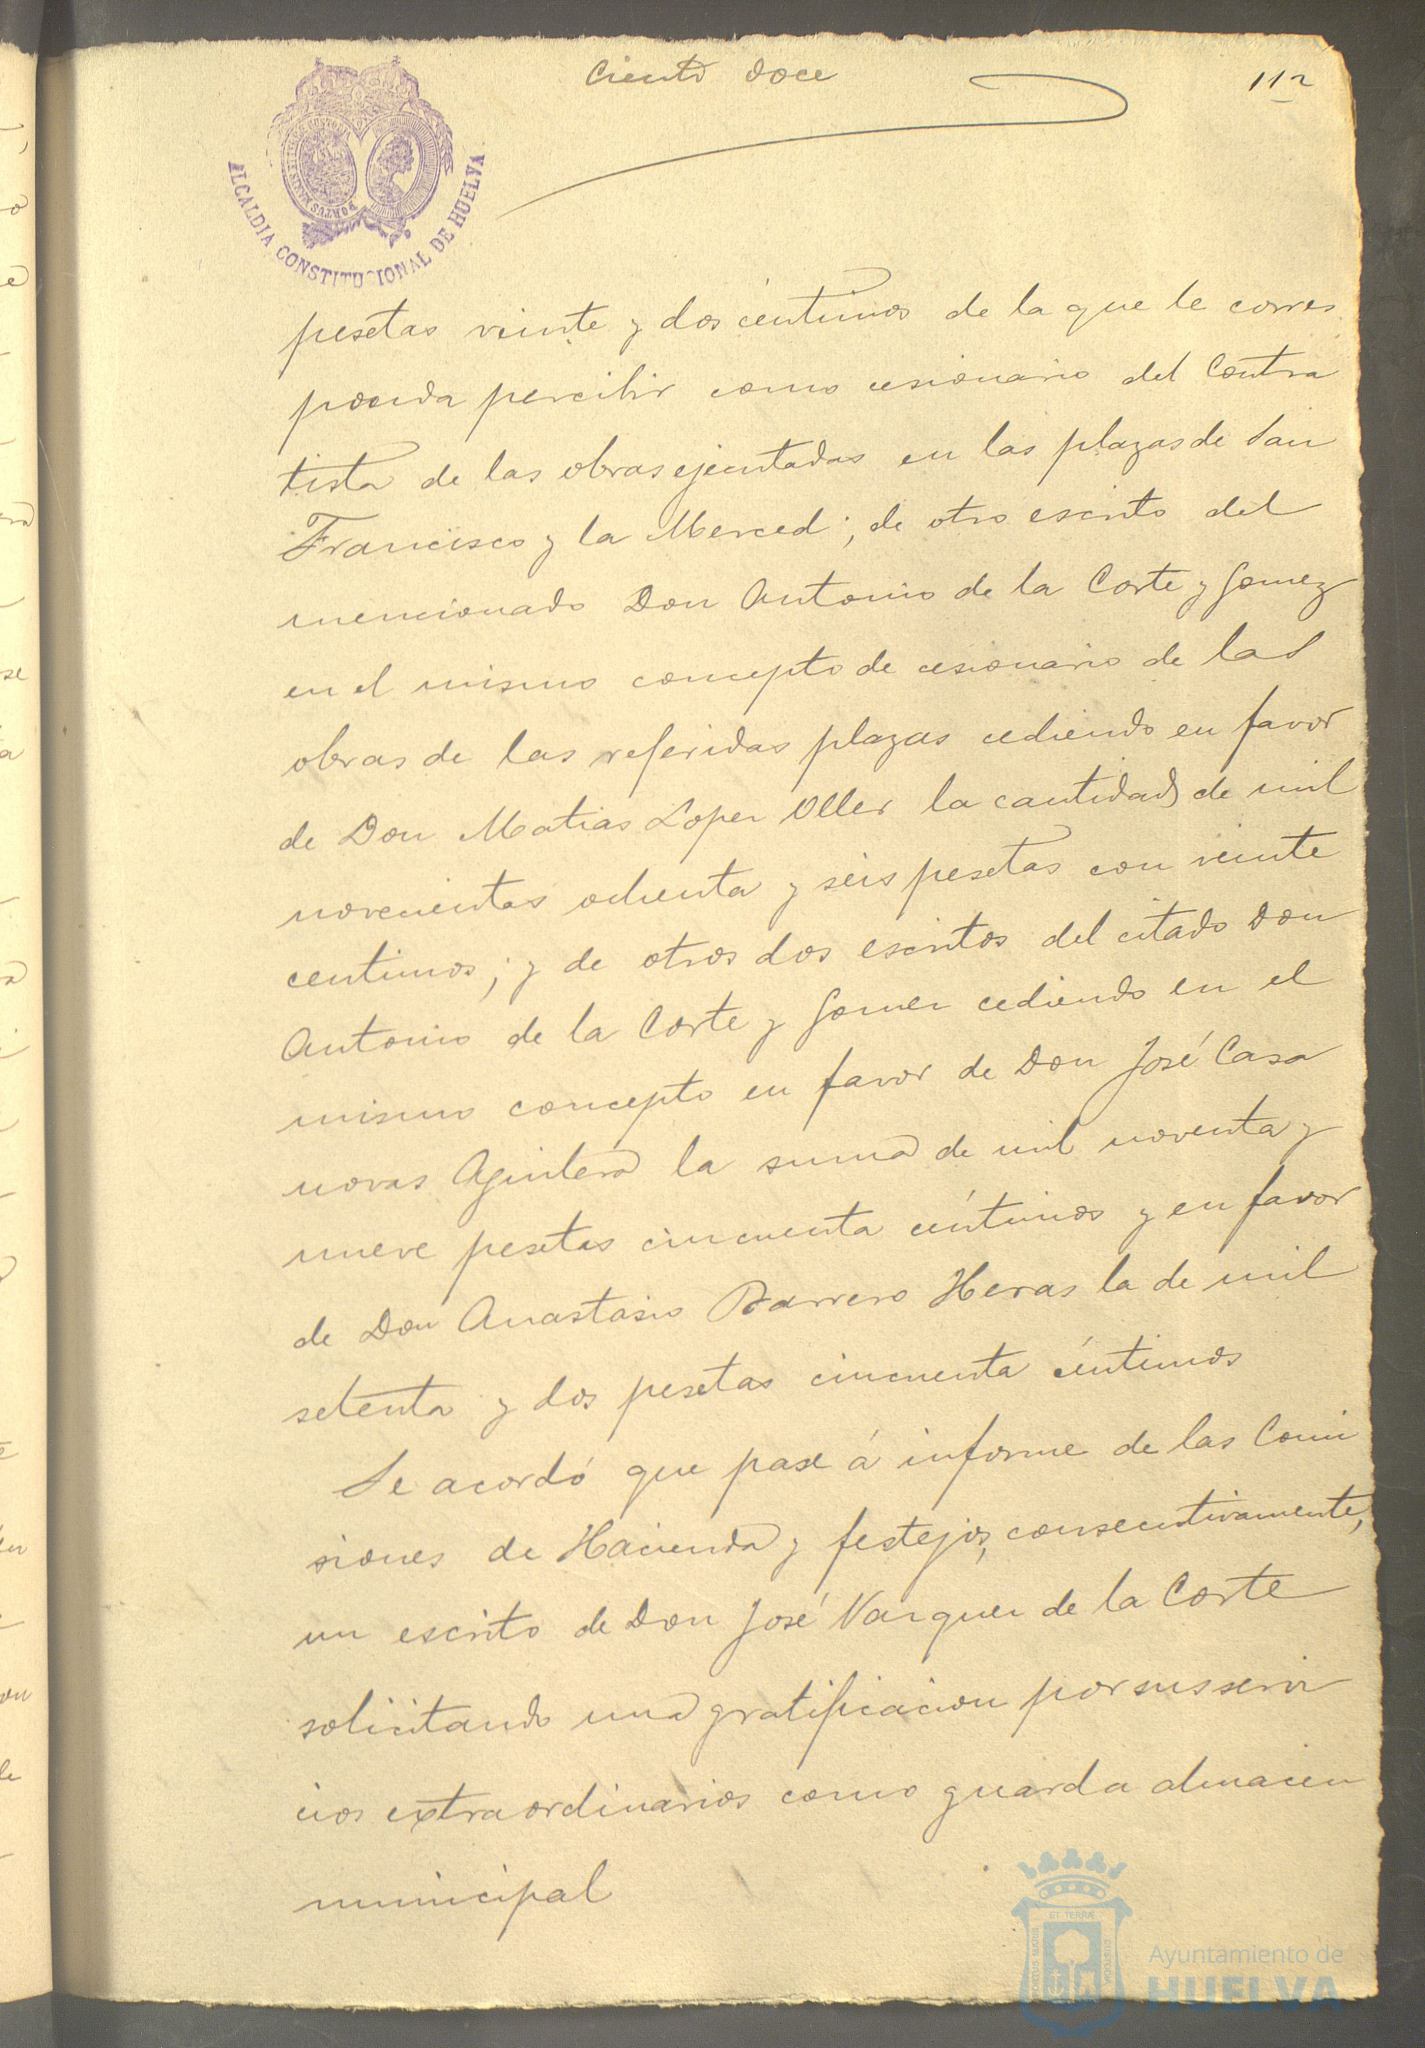 Ciento doce
112
ALCALDIA CONSTITUCIONAL DE HUELVA
pesetas veinte y dos céntimos de la que le corres
ponda percibir como cesionario del Contra
tista de las obras ejecutadas en las plazas de San
Francisco y la Merced; de otro escrito del
mencionado Don Antonio de la Corte y Gomez
en el mismo concepto de cesionario de las
obras de las referidas plazas cediendo en favor
de Don Matias Lopez Oller la cantidad de mil
novecientas ochenta y seis pesetas con veinte
centimos; y de otros dos escritos del citado Don
Antonio de la Corte y Gomez cediendo en el
mismo concepto en favor de Don José Casa
novas Aguilera la suma de mil noventa y
nueve pesetas cincuenta céntimos y en favor
de Don Anastasio Barrero Heras la de mil
setenta y dos pesetas cincuenta céntimos
Se acordó que pase á informe de las Comi
siones de Hacienda y festejos, consecutivamente,
un escrito de Don José Vazquez de la Corte
solicitando una gratificacion por sus servi
cios extraordinarios como guarda almacen
municipal
Ayuntamiento de
HUELVA